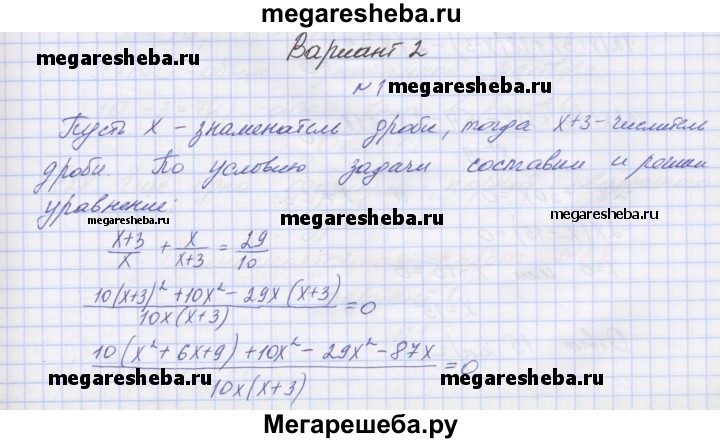 megaresheba.ru
Вариант 2
megaresheba.ru megaresheba.ru
№ 1
Пусть x – знаменатель дроби, тогда x+3 – числитель
дроби. По условию задачи составим и решим
уравнение:
megaresheba.ru megaresheba.ru megaresheba.ru
(x+3)/x + x/(x+3) = 29/10
(10(x+3)² + 10x² – 29x(x+3))/(10x(x+3)) = 0
(10(x² + 6x + 9) + 10x² – 29x² – 87x)/(10x(x+3)) = 0
megaresheba.ru megaresheba.ru
Мегарешеба.ру